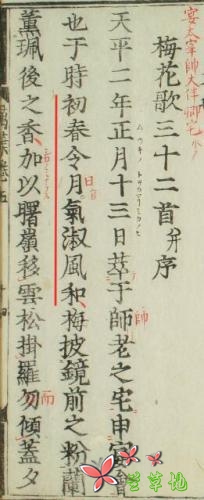 宴太宰帥大伴卿宅
梅花歌三十二首并序
天平二年正月十三日萃于師老之宅申宴
帥
也于時初春令月氣淑風和梅披鏡前之粉蘭
薫珮後之香加以曙嶺移雲松掛羅勿傾蓋夕
而
草地